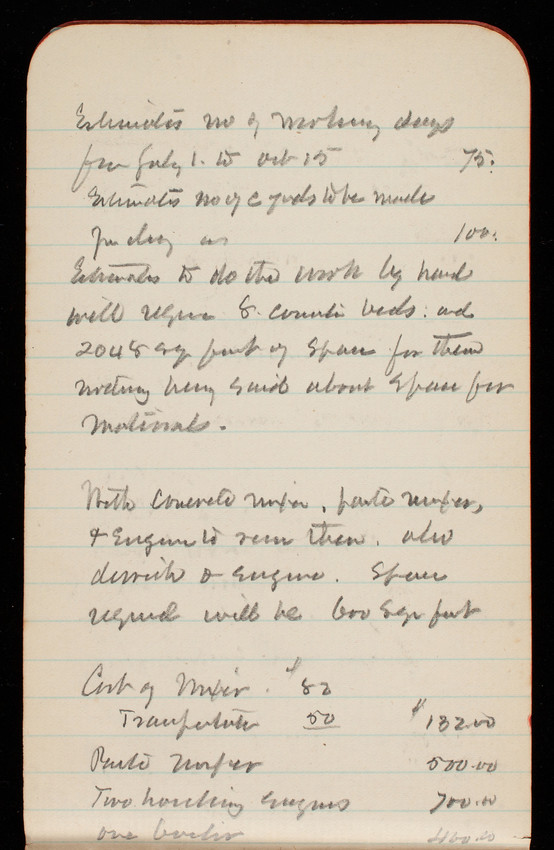 Estimates no of working days
from July 1. to oct 15 75.
Estimates no of c yards to be made
per day as 100.
Estimates to do the work by hand
will require 8. concrete beds. and
2048 sq feet of space for them
nothing being said about space for
materials.
With concrete mixer, paste mixer,
& Engine to run them. also
derrick & engine. Space
required will be 600 sqr feet
Cost of Mixer. $82
Transportation 50 $132.00
Paste Mixer 500.00
Two hoisting engines 700.00
one boiler 400.00